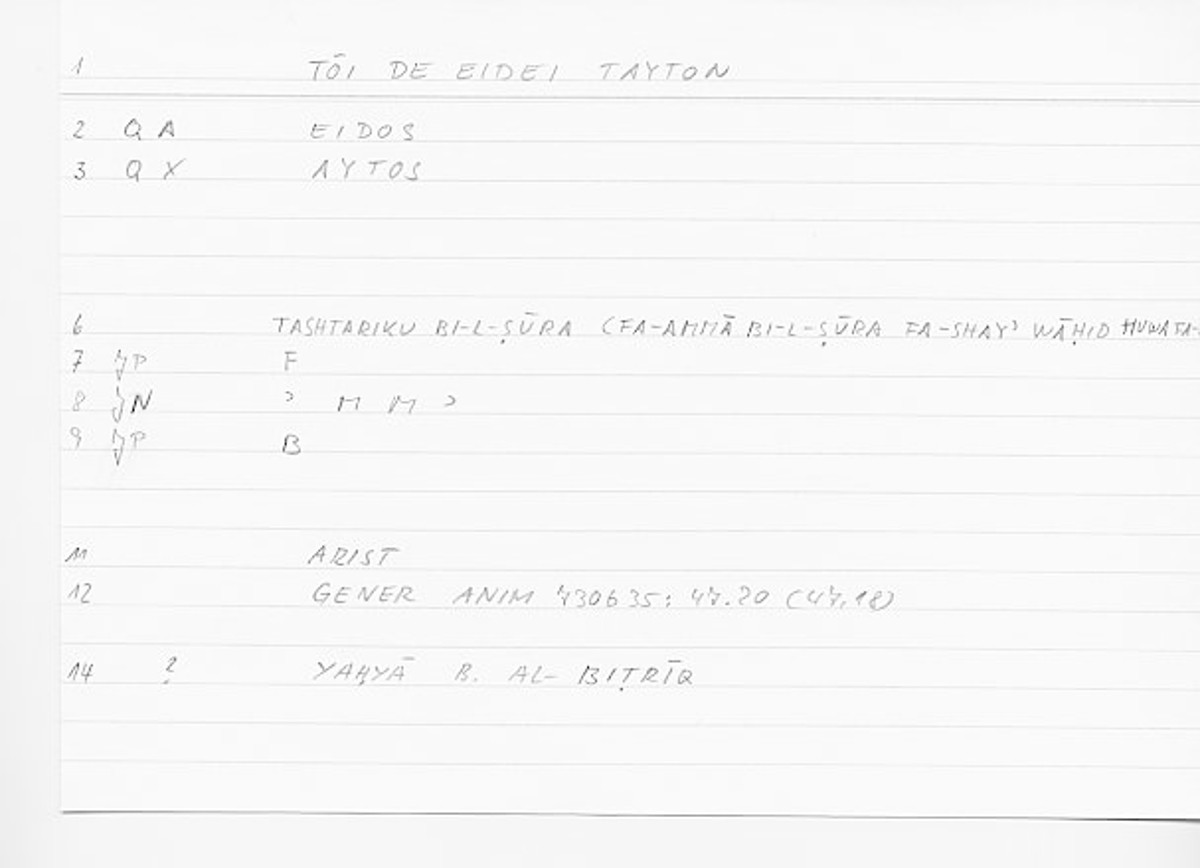 1 TŌI DE EIDEI TAYTON
2 Q A EIDOS
3 Q X AYTOS
6 TASHTARIKU BI-L-ṢŪRA (FA-AMMĀ BI-L-ṢŪRA FA-SHAYʾ WĀḤID HUWA FA-
7 JP F
8 JN ʾ M M ʾ
9 JP B
11 ARIST
12 GENER ANIM 730b35: 47.20 (47,18)
14 2 YAḤYĀ B. AL-BIṬRĪQ